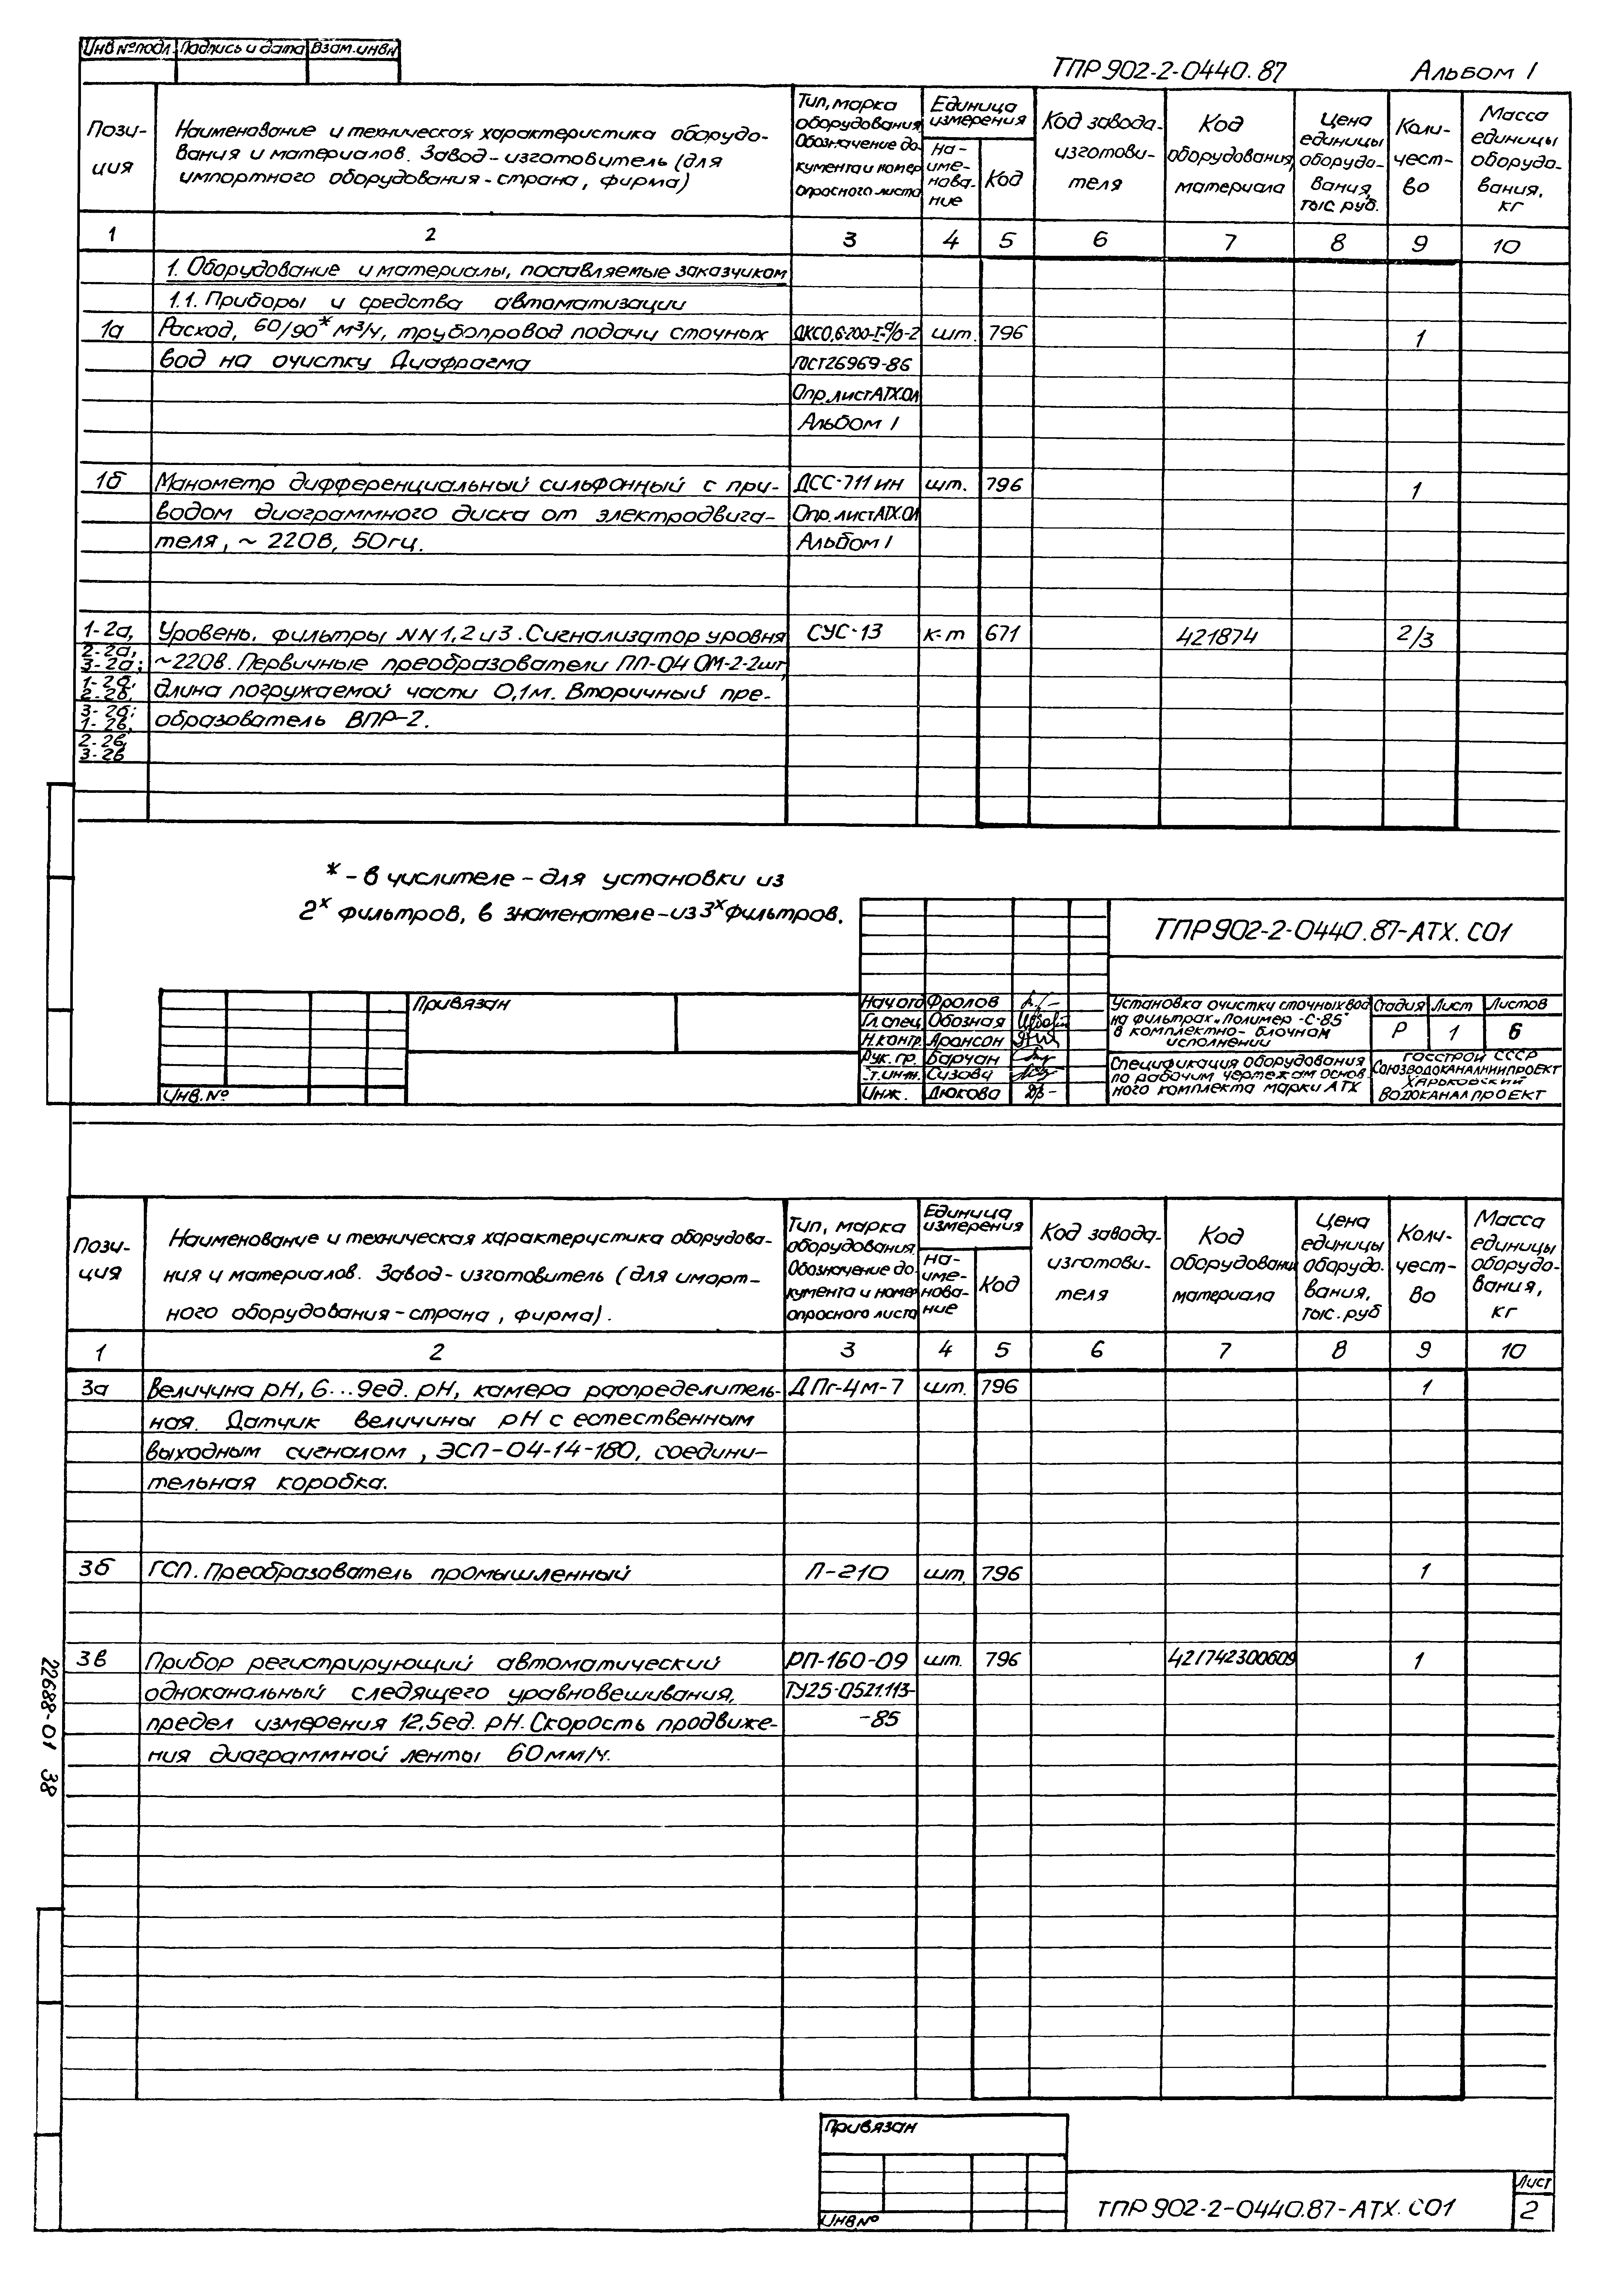 Инв№подл. Подпись и дата Взам.инв№
ТПР 902-2-0440.87 Альбом I
Пози-
ция
Наименование и техническая характеристика оборудо-
вания и материалов. Завод-изготовитель (для
импортного оборудования-страна, фирма)
Тип, марка
оборудования.
Обозначение до-
кумента и номер
опросного листа
Единица
измерения
На-
име-
нова-
ние
Код
Код завода-
изготови-
теля
Код
оборудования,
материала
Цена
единицы
оборудо-
вания,
тыс. руб.
Коли-
чест-
во
Масса
единицы
оборудо-
вания,
кг
1 2 3 4 5 6 7 8 9 10
1. Оборудование и материалы, поставляемые заказчиком
1.1. Приборы и средства автоматизации
1а Расход, 60/90* м³/ч, трубопровод подачи сточных ДКС0,6-200-I-а/б-2 шт. 796 1
вод на очистку Диафрагма ГОСТ26969-86
Опр.листАТХ.ОЛ
Альбом I
1б Манометр дифференциальный сильфонный с при- ДСС-711 ин шт. 796 1
водом диаграммного диска от электродвига- Опр.листАТХ.ОЛ
теля, ~ 220В, 50гц. Альбом I
1-2а, Уровень, фильтры NN 1,2 и 3. Сигнализатор уровня СУС-13 к-т 671 421874 2/3
2-2а,
3-2а; ~220В. Первичные преобразователи ПП-04 ОМ-2-2шт,
1-2б,
2-2б, длина погружаемой части 0,1м. Вторичный пре-
3-2б;
1-2в, образователь ВПР-2.
2-2в,
3-2в
* - в числителе - для установки из
2х фильтров, в знаменателе-из 3х фильтров.
ТПР 902-2-0440.87-АТХ. СО1
Привязан
Инв.№
Нач.отд Фролов
Гл.спец. Обозная
Н.контр. Арансон
Рук.гр. Барчан
Ст.инж. Сизова
Инж. Дюкова
Установка очистки сточных вод
на фильтрах „Полимер-С-85"
в комплектно-блочном
исполнении
Стадия Лист Листов
Р 1 6
Спецификация оборудования
по рабочим чертежам основ-
ного комплекта марки АТХ
Госстрой СССР
Союзводоканалниипроект
Харьковский
Водоканалпроект
Пози-
ция
Наименование и техническая характеристика оборудова-
ния и материалов. Завод-изготовитель (для иморт-
ного оборудования-страна, фирма).
Тип, марка
оборудования.
Обозначение до-
кумента и номер
опросного листа
Единица
измерения
На-
име-
нова-
ние
Код
Код завода-
изготови-
теля
Код
оборудовани
материала
Цена
единицы
оборудо-
вания,
тыс. руб
Коли-
чест-
во
Масса
единицы
оборудо-
вания,
кг
1 2 3 4 5 6 7 8 9 10
3а Величина рН, 6...9ед. рН, камера распределитель- ДПг-4м-7 шт. 796 1
ная. Датчик величины рН с естественным
выходным сигналом, ЭСП-04-14-180, соедини-
тельная коробка.
3б ГСП. Преобразователь промышленный П-210 шт. 796 1
3в Прибор регистрирующий автоматический РП-160-09 шт. 796 421742300609 1
одноканальный следящего уравновешивания, ТУ25-0521.113-
предел измерения 12,5ед. рН. Скорость продвиже- -85
ния диаграммной ленты 60мм/ч.
22688-01 38
Привязан
Инв№
ТПР 902-2-0440.87-АТХ. СО1
Лист
2